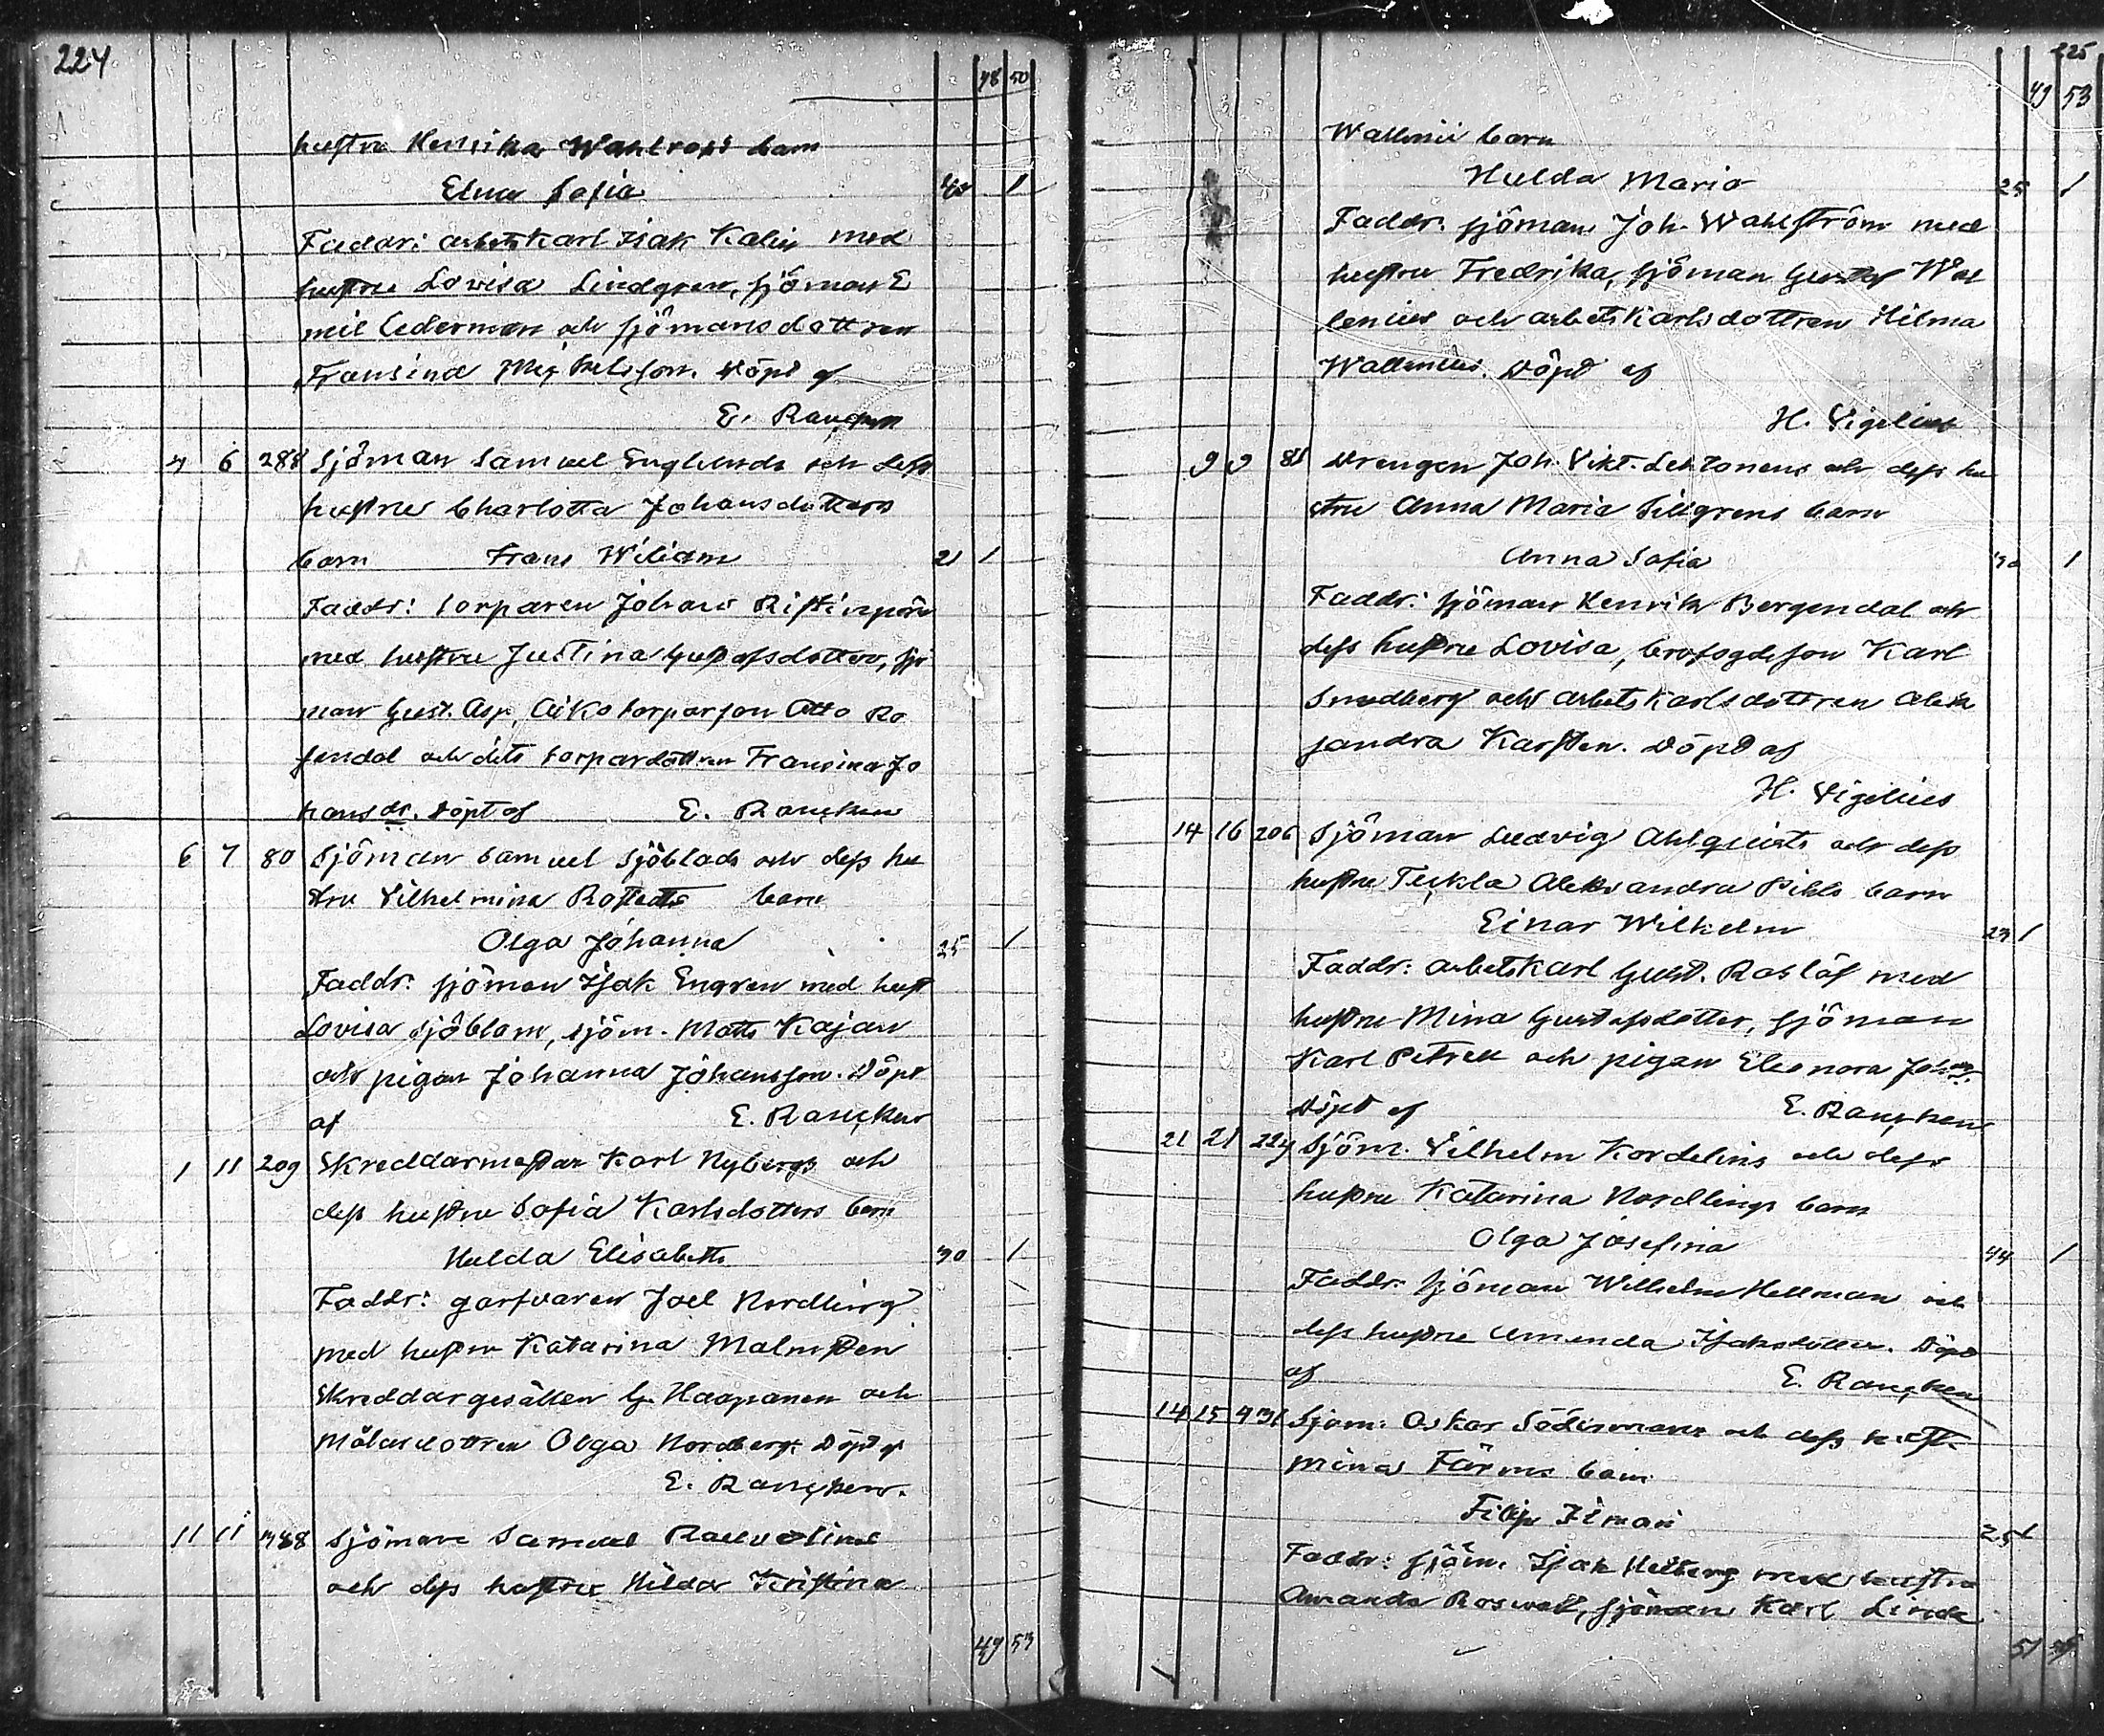 224
48 50
hustru Henrika Wahlroos barn
Elna Sofia 40 1
Faddr: arbetskarl Isak Kalin med
hustru Lovisa Lindgren, sjöman E
mil Cederman och sjömansdottren
Fransina Mickelsson. Döpt af
E. Rancken
4 6 288 Sjöman Samuel Englunds och dess
hustru Charlotta Johansdotters
barn Frans Wiliam 21 1
Faddr: torparen Johan
med hustru Justina Gustafsdotter, sjö
man Gust. Asp, torparson Otto Ro
sendal och dito torpardottren Fransina Jo
hansdr. Döpt af E. Rancken
6 7 80 Sjöman Samuel Sjöblads och dess hu
stru Vilhelmina barn
Olga Johanna 25 1
Faddr: sjöman Isak Engren med hust
Lovisa Sjöblom, sjöm. Matts Kajan
och pigan Johanna Johansson. Döpt
af E. Rancken
1 11 209 Skreddarmästar Karl Nybergs och
dess hustru Sofia Karlsdotters barn
Hulda Elisabeth 30 1
Faddr: garfvaren Joel Nordling
med hustru Katarina Malmsten
Skreddargesällen G. Haapanen och
Målardottren Olga Nordberg. Döpt af
E. Rancken.
11 11 388 Sjöman Samuel
och dess hustru Hilda Kristina
49 53
225
49 53
Wallenii barn
Hulda Maria 25 1
Faddr. sjöman Joh. Wahlström med
hustru Fredrika, sjöman Gustaf Wal
lenius och arbetskarlsdottren Hilma
Wallenius. Döpt af
H. Vigelius
9 9 81 Drengen Joh. Vikt. Lehtonens och dess hu
stru Anna Maria Sillgrens barn
Anna Sofia 1
Faddr: sjöman Henrik Bergendal och
dess hustru Lovisa, Karl
Smedberg och arbetskarlsdottren Alek
sandra Karsten. Döpt af
H. Vigelius
14 16 206 Sjöman Ludvig Ahlquists och dess
hustru Teckla Aleksandra Pihls barn
Einar Wilhelm 23 1
Faddr: arbetskarl Gust. Roslöf med
hustru Mina Gustafsdotter, sjöman
Karl Petrell och pigan Eleonora
Döpt af E. Rancken
21 21 224 Sjöm. Vilhelm Kordelins och dess
hustru Katarina Nordlings barn
Olga Josefina 44 1
Faddr. sjöman Wilhelm Hellman och
dess hustru Amanda Isaksdotter. Döpt
af E. Rancken
14 15 431 Sjöm. Oskar Södermans och dess hust.
Mina Färms barn
Filip Ilmari 25 1
Faddr: sjöm. Isak Helberg med hustru
Amanda Roswall, sjöman Karl Linde
51